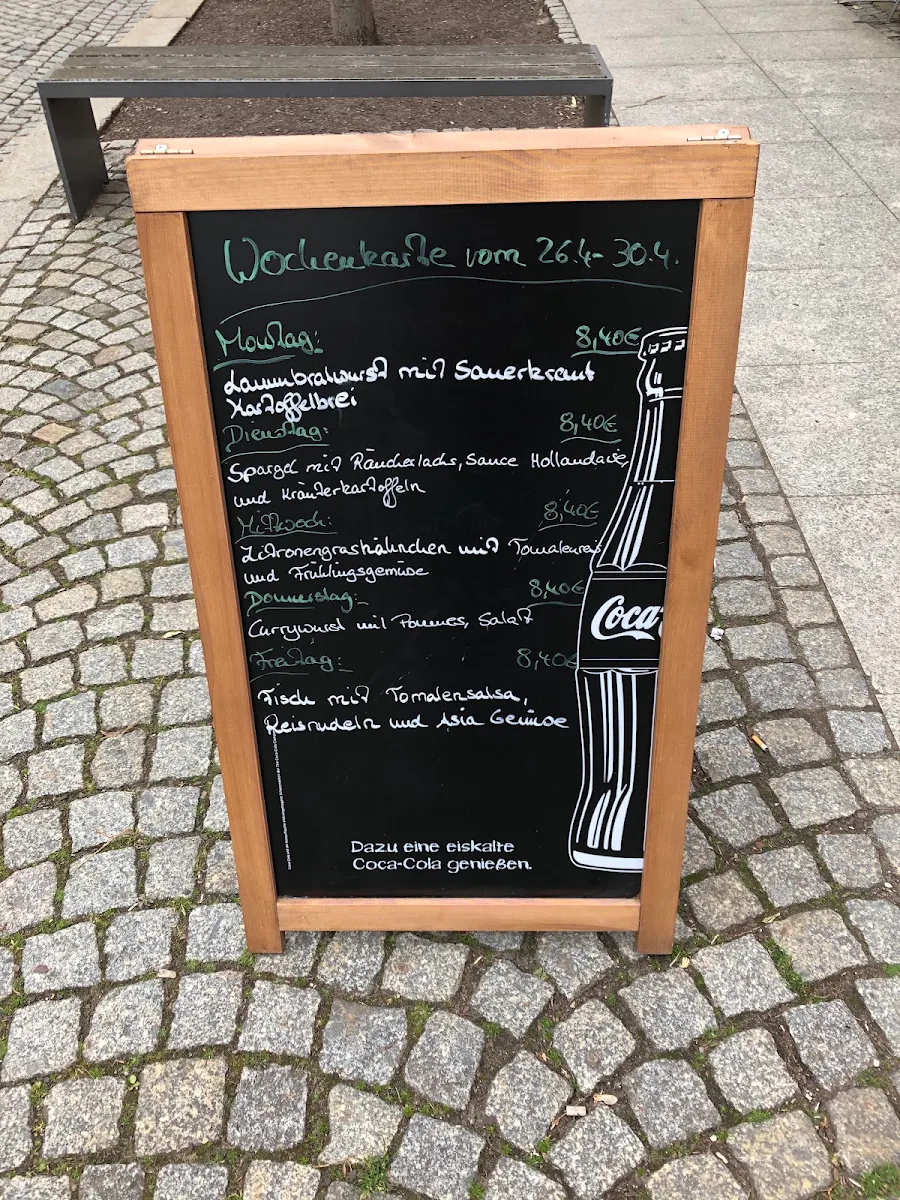 Wochenkarte vom 26.4- 30.4.
Montag: 8,40€
Lammbratwurst mit Sauerkraut
Kartoffelbrei
Dienstag: 8,40€
Spargel mit Räucherlachs, Sauce Hollandaise,
und Kräuterkartoffeln
Mittwoch: 8,40€
Zitronengrashähnchen mit Tomatenreis
und Frühlingsgemüse
Donnerstag: 8,40€
Currywurst mit Pommes, Salat
Freitag: 8,40€
Fisch mit Tomatensalsa,
Reisnudeln und Asia Gemüse
Coca
Dazu eine eiskalte
Coca-Cola genießen.